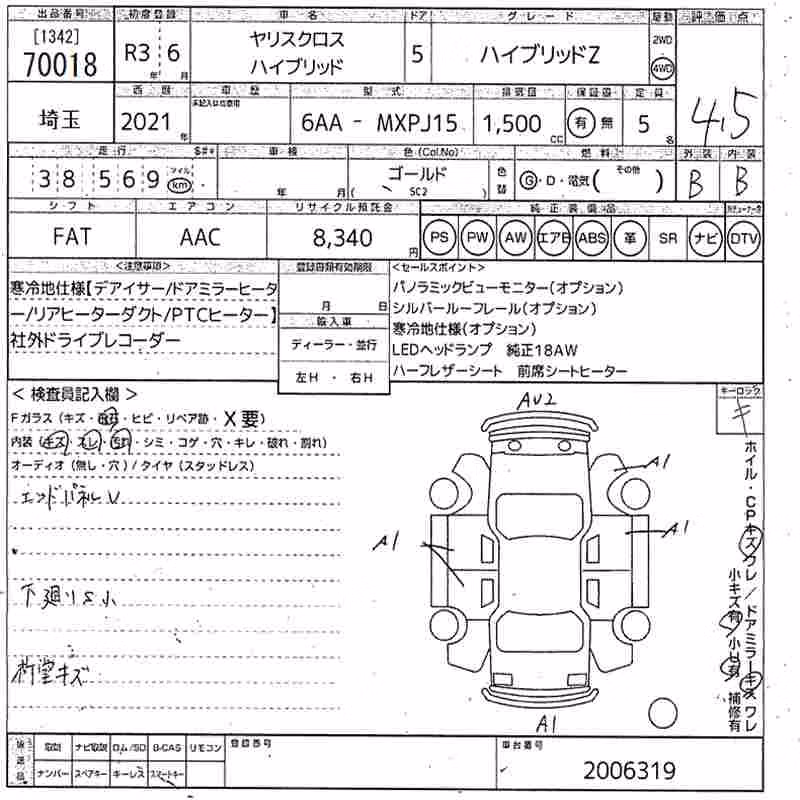 出品番号 初度登録 車名 ドア グレード 駆動 評価点
[1342]
70018 R3年 6月 ヤリスクロス ハイブリッド 5 ハイブリッドZ 2WD 4WD 4.5
西暦 車歴 型式 排気量 保証書 定員
埼玉 2021年 未記入は自家用 6AA - MXPJ15 1,500cc 有 無 5名
走行 $#* 車検 色(Col.No) 燃料 外装 内装
38569 マイル km 年 月 ゴールド ( SC2 ) 色替 G・D・電気 ( その他 ) B B
シフト エアコン リサイクル預託金 純正装備品
FAT AAC 8,340円 PS PW AW エアB ABS 革 SR ナビ DTV
<注意事項> 登録書類有効期限 <セールスポイント>
寒冷地仕様【デアイサー/ドアミラーヒータ
ー/リアヒーターダクト/PTCヒーター】
社外ドライブレコーダー
月 日
輸入車
ディーラー・並行
左H ・ 右H
パノラミックビューモニター(オプション)
シルバールーフレール(オプション)
寒冷地仕様(オプション)
LEDヘッドランプ 純正18AW
ハーフレザーシート 前席シートヒーター
< 検査員記入欄 >
Fガラス (キズ・飛石・ヒビ・リペア跡・X要)
内装 (キズ・スレ・汚れ・シミ・コゲ・穴・キレ・破れ・割れ)
オーディオ (無し・穴) / タイヤ (スタッドレス)
エンドパネルU
下廻りS小
キズ
AU2
A1
A1
A1
A1
キーロック
キ
ホイル・CPキズ ワレ / ドアミラーキズ ワレ
小キズ有 / 小U有 補修有
後送品 取説 ナビ取説 ロム/SD B-CAS リモコン 登録番号 車台番号
ナンバー スペアキー キーレス スマートキー 2006319